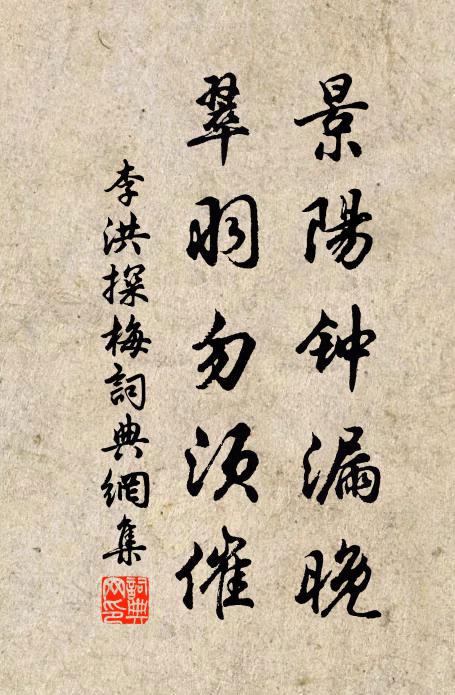 景陽钟漏晚
翠羽勿須催
李洪探梅詞典網集
詞典網印